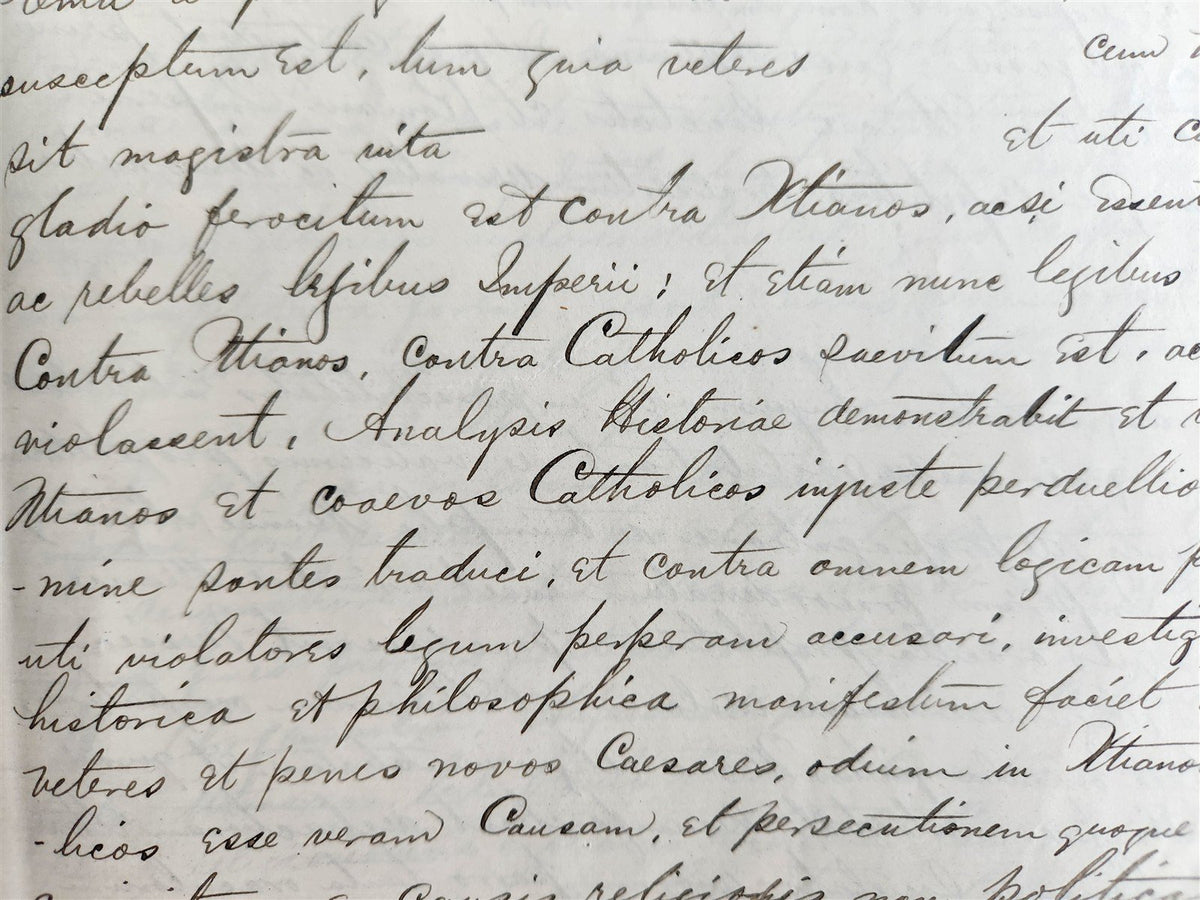 susceptum est, tum quia veteres cum
sit magistra vita et uti
gladio ferocitum est contra Xtianos, acsi essent
ac rebelles legibus Imperii; et etiam nunc legibus
Contra Xtianos, contra Catholicos saevitum est, ac
violassent, Analysis Historiae demonstrabit et
Xtianos et coaevos Catholicos injuste perduellio
-mine sontes traduci, et contra omnem logicam
uti violatores legum perperam accusari, investig
historica et philosophica manifestum faciet
veteres et penes novos Caesares, odium in Xtiano
-licos esse veram Causam, et persecutionem quoque
a causis religiosis non politica